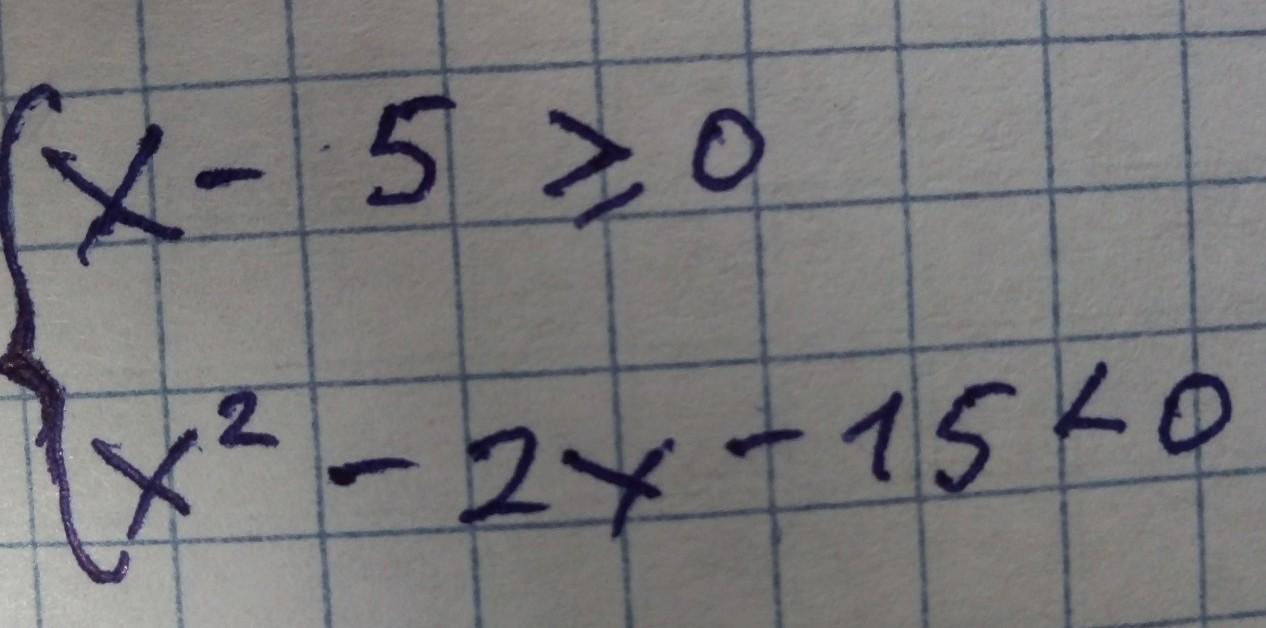 x - 5 ≥ 0
x² - 2x - 15 < 0